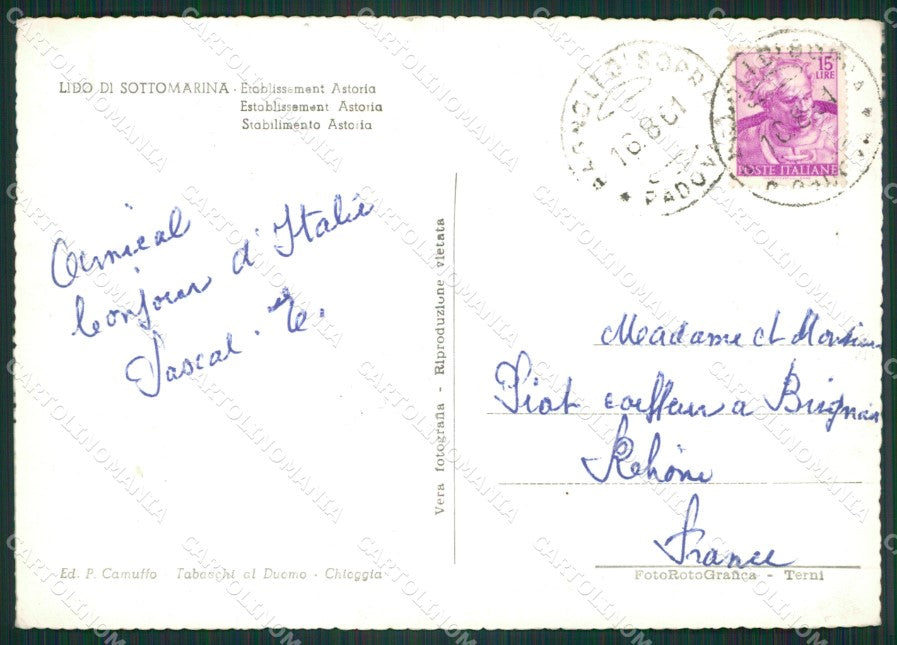 LIDO DI SOTTOMARINA - Etablissement Astoria
Establissement Astoria
Stabilimento Astoria
15 LIRE
POSTE ITALIANE
16.8.61
PADOVA
Amical
bonjour d'Italie
Pascal. E.
Vera fotografia - Riproduzione vietata
Madame et Monsieur
Piat coiffeur a Brignais
Rhône
France
Ed. P. Camuffo Tabacchi al Duomo - Chioggia
FotoRotoGrafica - Terni
CARTOLINOMANIA